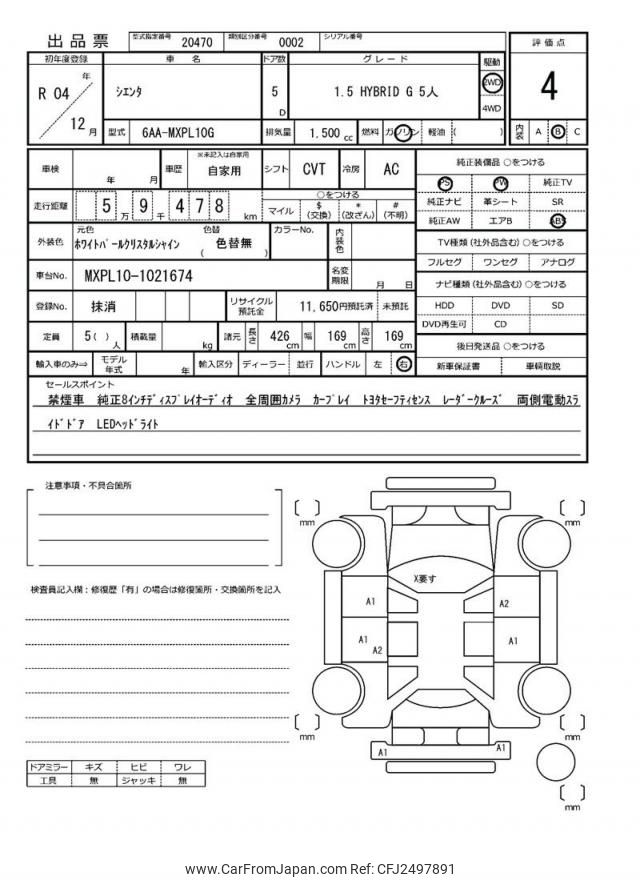 出品票 型式指定番号 20470 類別区分番号 0002 シリアル番号
初年度登録 車名 ドア数 グレード 駆動 評価点
R 04 年 12 月 シエンタ 5 D 1.5 HYBRID G 5人 2WD 4WD 4
型式 6AA-MXPL10G 排気量 1,500 cc 燃料 ガソリン 軽油 ( ) 内装 A B C
車検 年 月 車歴 ※未記入は自家用 自家用 シフト CVT 冷房 AC
純正装備品 ○をつける
PS PW 純正TV
純正ナビ 革シート SR
純正AW エアB ABS
走行距離 5 万 9 千 4 7 8 km ○をつける マイル $(交換) *(改ざん) #(不明)
外装色 元色 ホワイトパールクリスタルシャイン 色替 ( 色替無 ) カラーNo. 内装色
TV種類(社外品含む)○をつける
フルセグ ワンセグ アナログ
車台No. MXPL10-1021674 名変期限 月 日
ナビ種類(社外品含む)○をつける
HDD DVD SD
DVD再生可 CD
登録No. 抹消 リサイクル預託金 11,650円預託済 未預託
定員 5( ) 人 積載量 kg 諸元 長さ 426 cm 幅 169 cm 高さ 169 cm
後日発送品 ○をつける
新車保証書 車輌取説
輸入車のみ⇒ モデル年式 年 輸入区分 ディーラー 並行 ハンドル 左 右
セールスポイント
禁煙車 純正8インチディスプレイオーディオ 全周囲カメラ カープレイ トヨタセーフティセンス レーダークルーズ 両側電動スラ
イドドア LEDヘッドライト
注意事項・不具合箇所
検査員記入欄:修復歴「有」の場合は修復箇所・交換箇所を記入
mm
mm
X要す
A1
A2
A1
A2
A1
mm
mm
A1
A1
mm
ドアミラー キズ ヒビ ワレ
工具 無 ジャッキ 無
www.CarFromJapan.com Ref: CFJ2497891